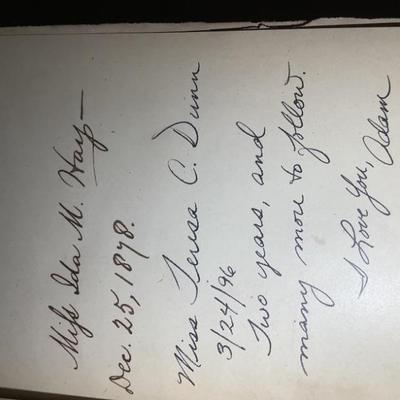 Miss Ida M. Hay—
Dec. 25, 1878.
Miss Teresa C. Dunn
3/24/96
Two years, and
many more to follow.
I Love You,
Adam